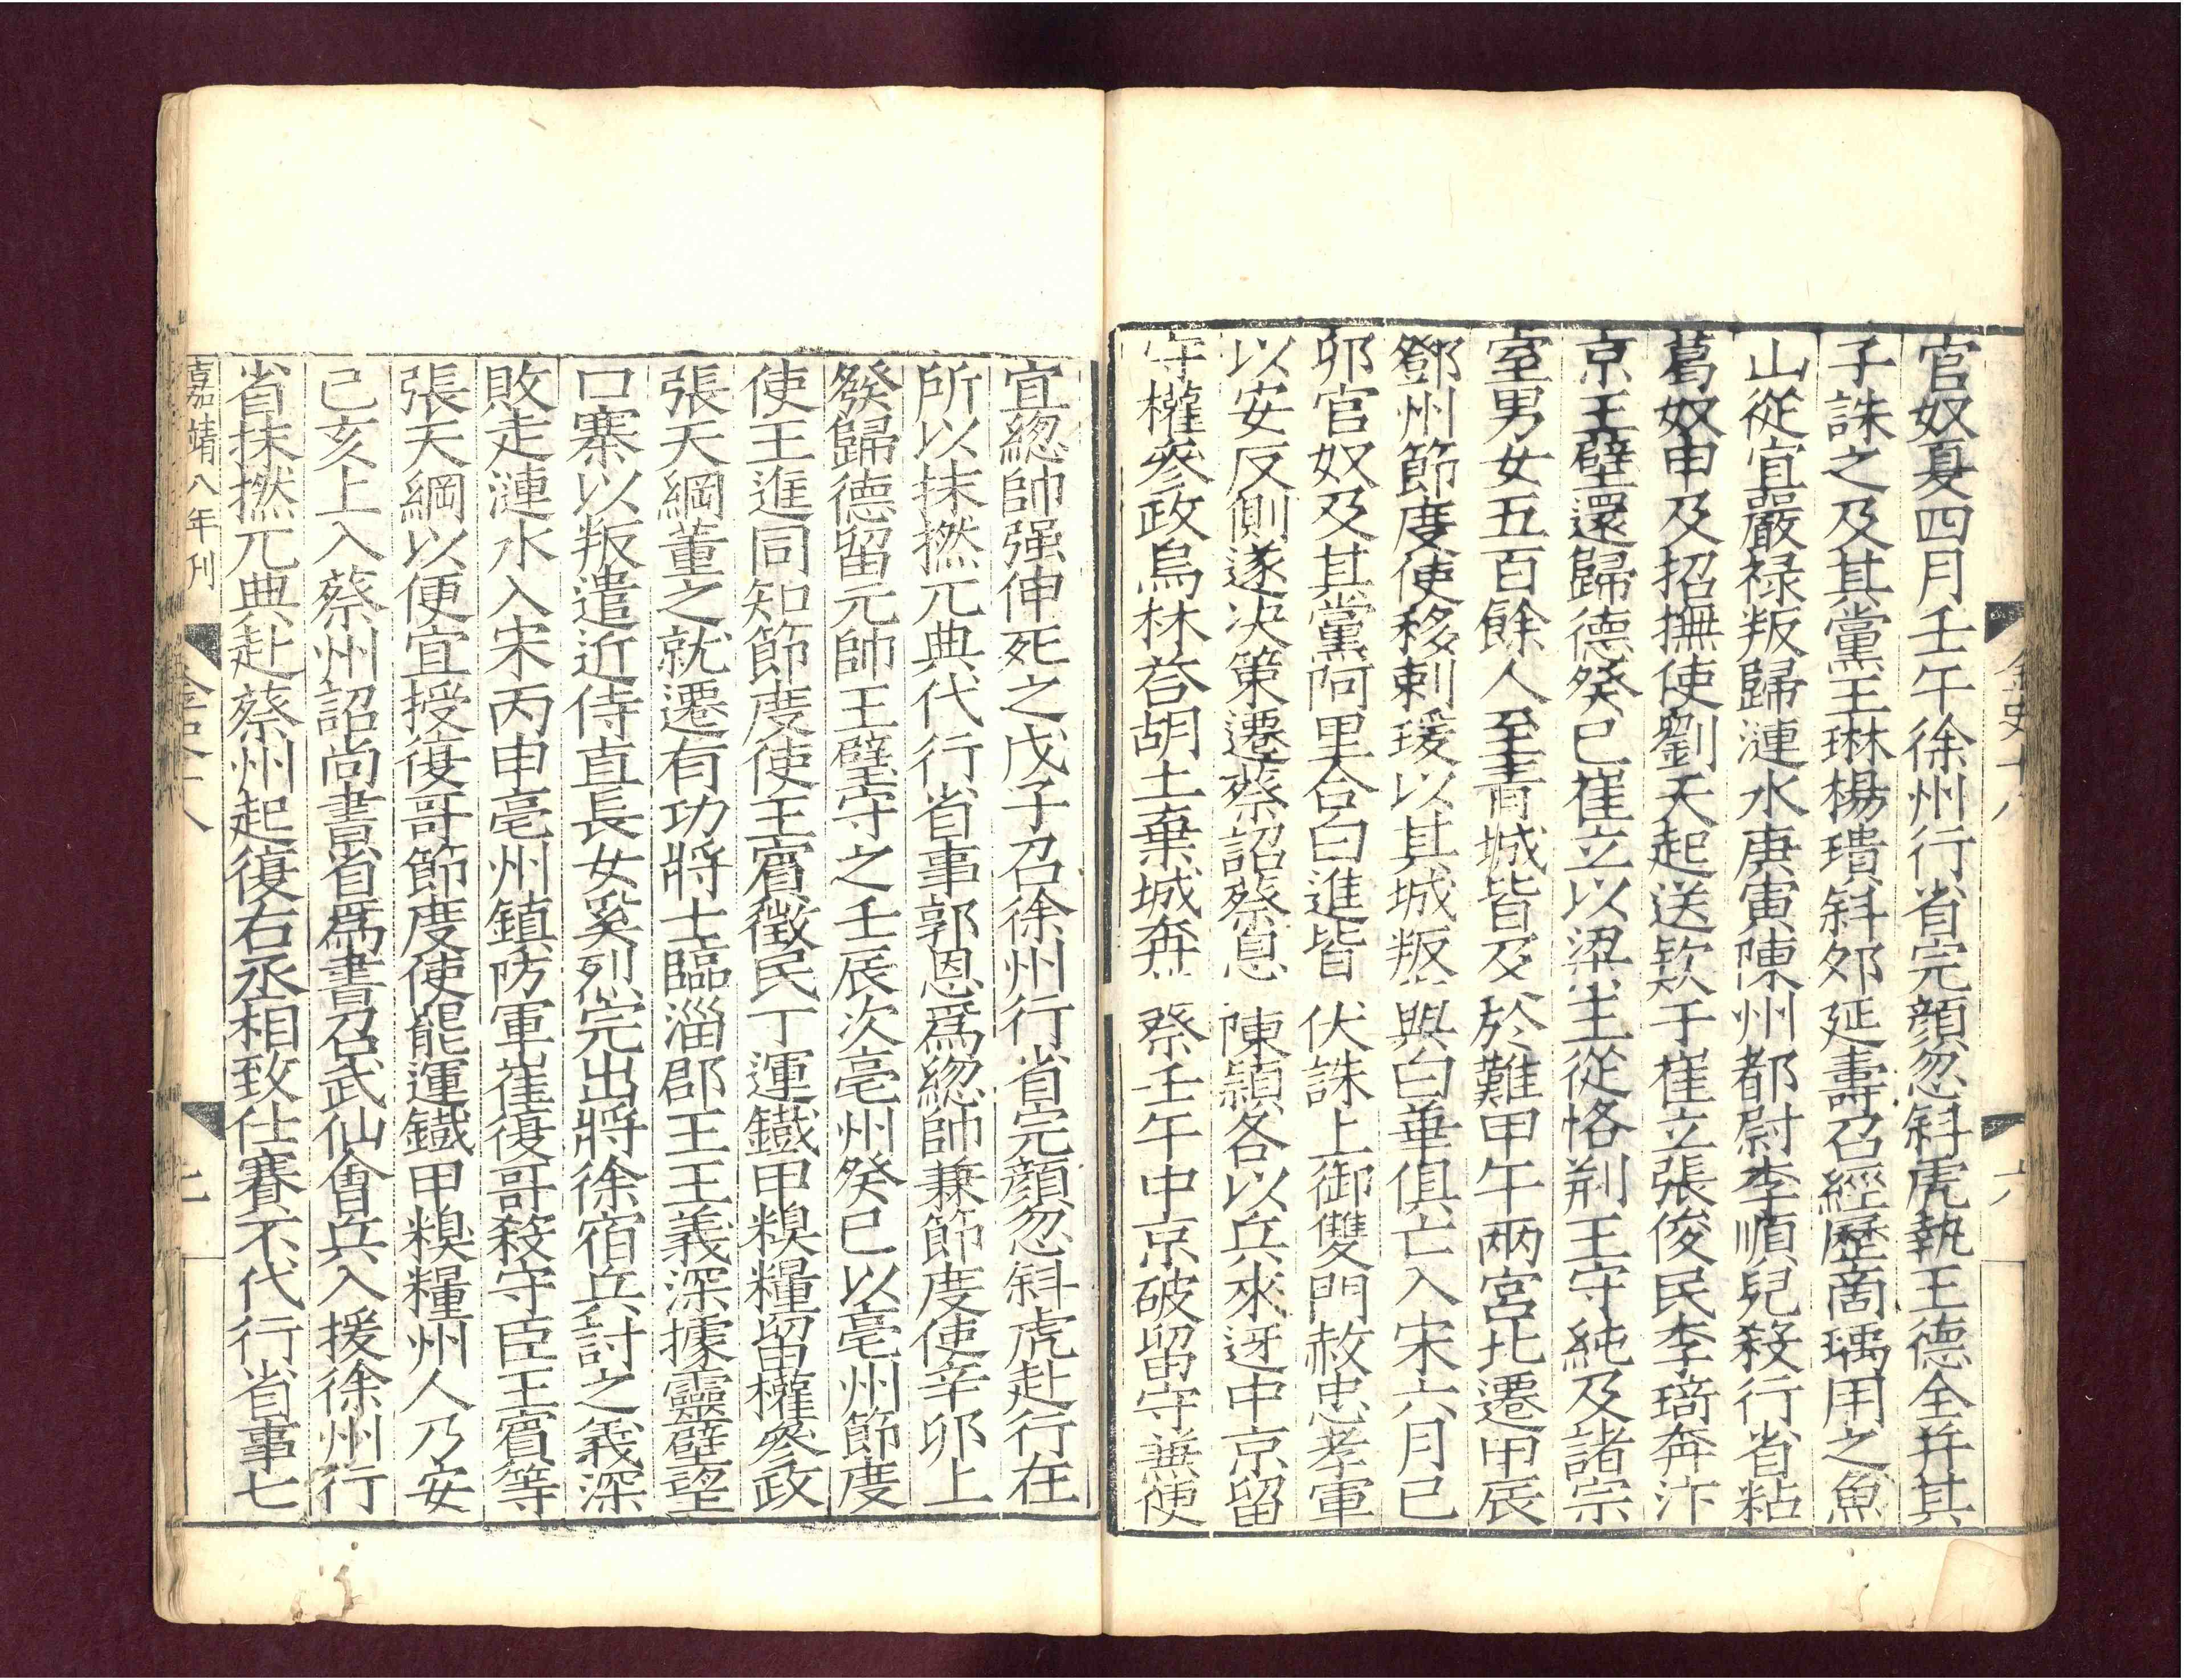 金史十八
六
官奴夏四月壬午徐州行省完顏忽斜虎執王德全并其
子誅之及其黨王琳楊璝斜夘延壽召經歷商瑀用之魚
山從宜嚴祿叛歸漣水庚寅陳州都尉李順兒殺行省粘
葛奴申及招撫使劉天起送欵于崔立張俊民李琦奔汴
京王璧還歸德癸巳崔立以梁王從恪荆王守純及諸宗
室男女五百餘人至青城皆及於難甲午兩宮北遷甲辰
鄧州節度使移剌瑗以其城叛與白華俱亡入宋六月己
夘官奴及其黨阿里合白進皆伏誅上御雙門赦忠孝軍
以安反側遂決策遷蔡詔蔡息陳潁各以兵來迓中京留
守權參政烏林荅胡土棄城奔蔡壬午中京破留守兼便
宜緫帥强伸死之戊子召徐州行省完顏忽斜虎赴行在
所以抹撚兀典代行省事郭恩爲緫帥兼節度使辛夘上
發歸德留元帥王璧守之壬辰次亳州癸巳以亳州節度
使王進同知節度使王賓徵民丁運鐵甲糗糧留權參政
張天綱董之就遷有功將士臨淄郡王王義深據靈壁望
口寨以叛遣近侍直長女奚烈完出將徐宿兵討之義深
敗走漣水入宋丙申亳州鎮防軍崔復哥殺守臣王賓等
張天綱以便宜授復哥節度使罷運鐵甲糗糧州人乃安
己亥上入蔡州詔尚書省爲書召武仙會兵入援徐州行
省抹撚兀典赴蔡州起復右丞相致仕賽不代行省事七
嘉靖八年刊
金史十八
七